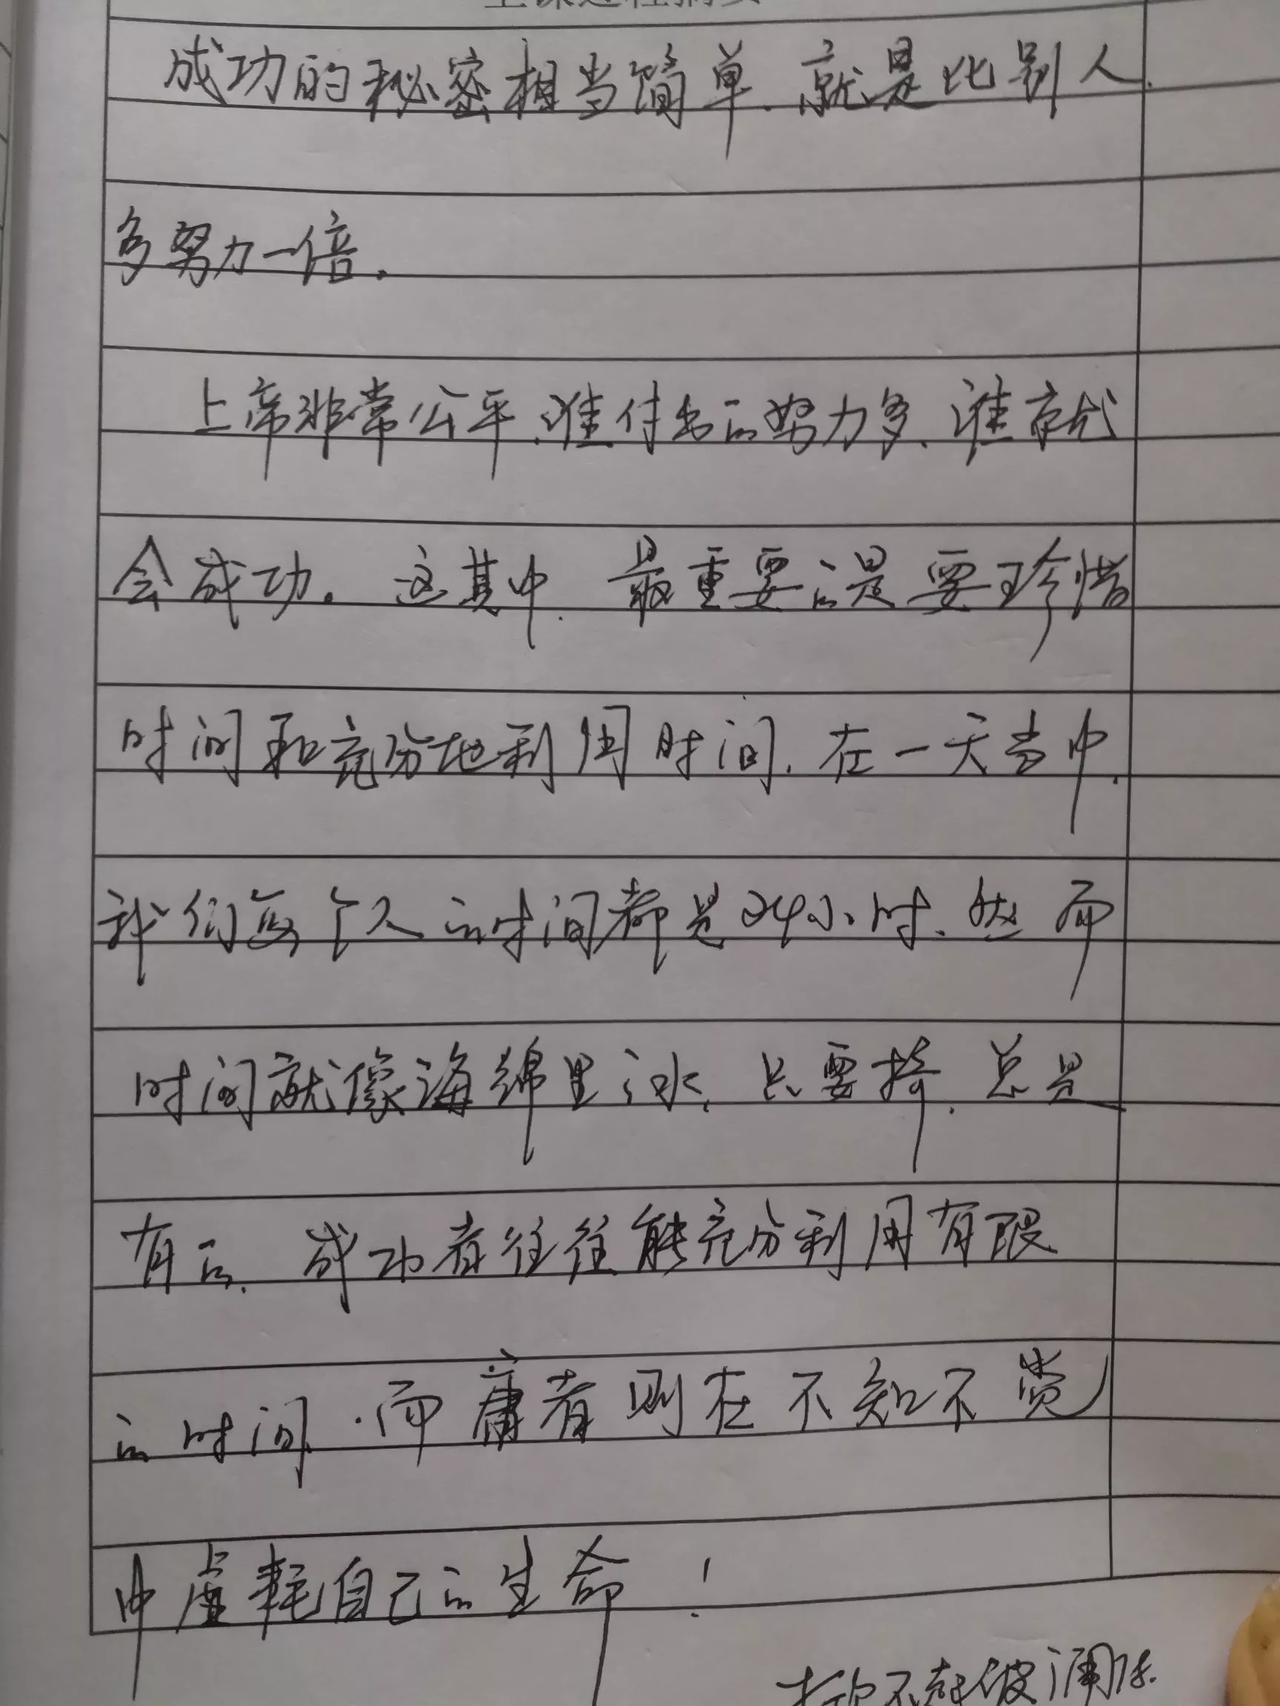 成功的秘密相当简单、就是比别人
多努力一倍。
上帝非常公平、谁付出的努力多、谁就
会成功。这其中、最重要的是要珍惜
时间和充分地利用时间、在一天当中、
我们每个人的时间都是24小时、然而
时间就像海绵里的水、只要挤、总是
有的、成功者往往能充分利用有限
的时间、而庸者则在不知不觉
中虚耗自己的生命!